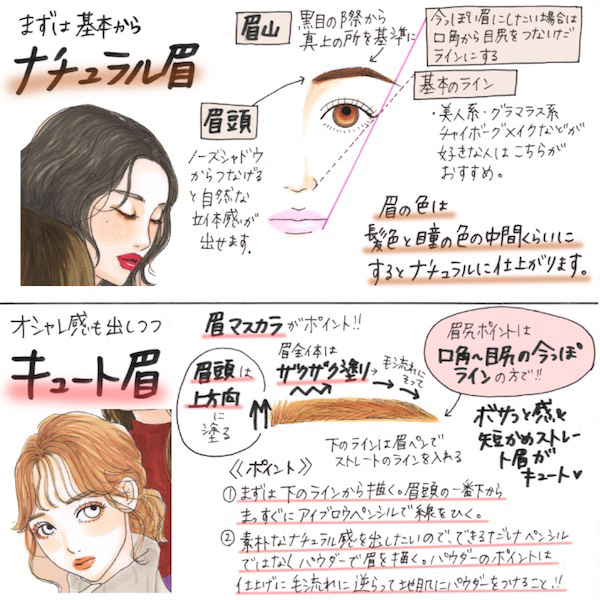 まずは基本から
ナチュラル眉
眉山
黒目の際から
真上の所を基準に
今っぽい眉にしたい場合は
口角から目尻をつないだ
ラインにする
基本のライン
・美人系・グラマラス系
チャイボーグメイクなどが
好きな人はこちらが
おすすめ。
眉頭
ノーズシャドウ
からつなげる
と自然な
立体感が
出せます。
眉の色は
髪色と瞳の色の中間くらいに
するとナチュラルに仕上がります。
オシャレ感も出しつつ
キュート眉
眉マスカラがポイント!!
眉頭は
上方向
に
塗る
眉全体は
ザクザク塗り
毛流れに
そって
下のラインは眉ペンで
ストレートのラインを入れる
眉尻ポイントは
口角〜目尻の今っぽ
ラインの方で!!
ボサっと感&
短かめストレー
ト眉が
キュート♥
《ポイント》
①まずは下のラインから描く。眉頭の一番下から
まっすぐにアイブロウペンシルで線をひく。
②素朴なナチュラル感を出したいので、できるだけペンシル
ではなくパウダーで眉を描く。パウダーのポイントは
仕上げに毛流れに逆らって地肌にパウダーをつけること!!